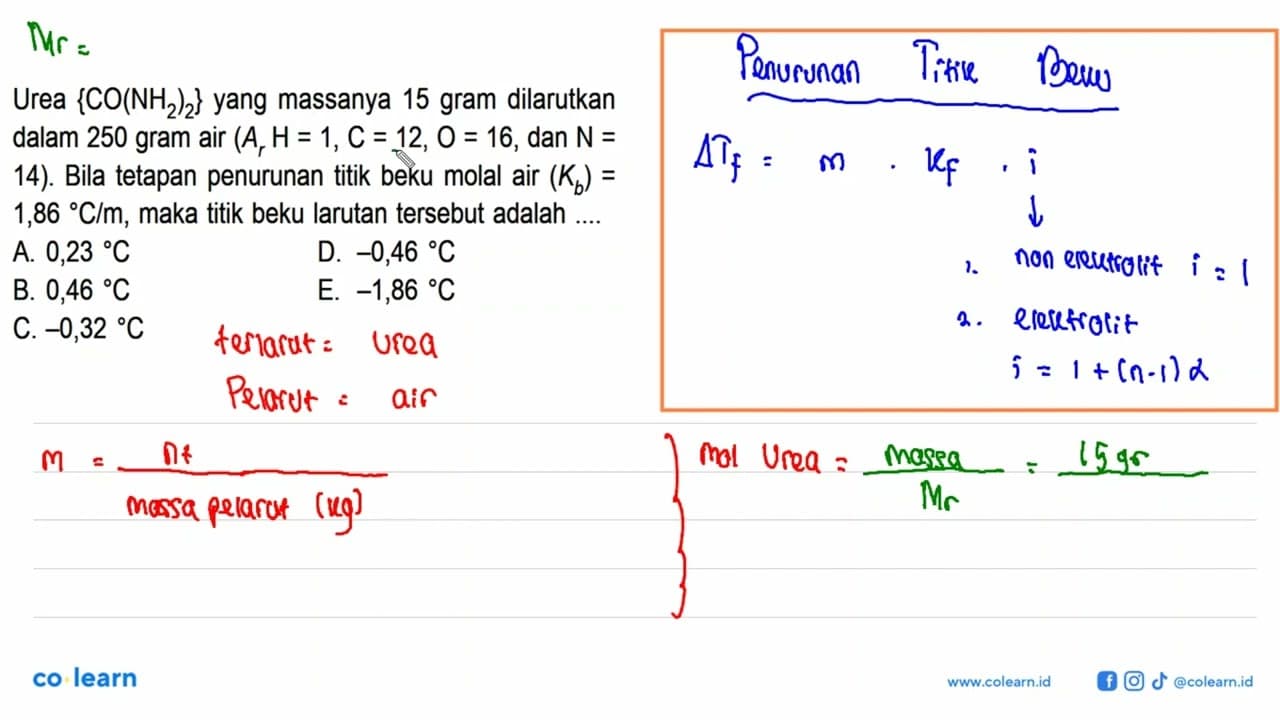 Mr =
Urea {CO(NH₂)₂} yang massanya 15 gram dilarutkan
dalam 250 gram air (Aᵣ H = 1, C = 12, O = 16, dan N =
14). Bila tetapan penurunan titik beku molal air (K_b) =
1,86 °C/m, maka titik beku larutan tersebut adalah ....
A. 0,23 °C
D. –0,46 °C
B. 0,46 °C
E. –1,86 °C
C. –0,32 °C
terlarut = urea
Pelarut = air
Penurunan Titik Beku
ΔT_f = m . K_f . i
↓
1. non elektrolit i = 1
2. elektrolit
i = 1 + (n-1) α
m = nt / massa pelarut (kg)
mol Urea = massa / Mr = 15 gr
co·learn
www.colearn.id
@colearn.id